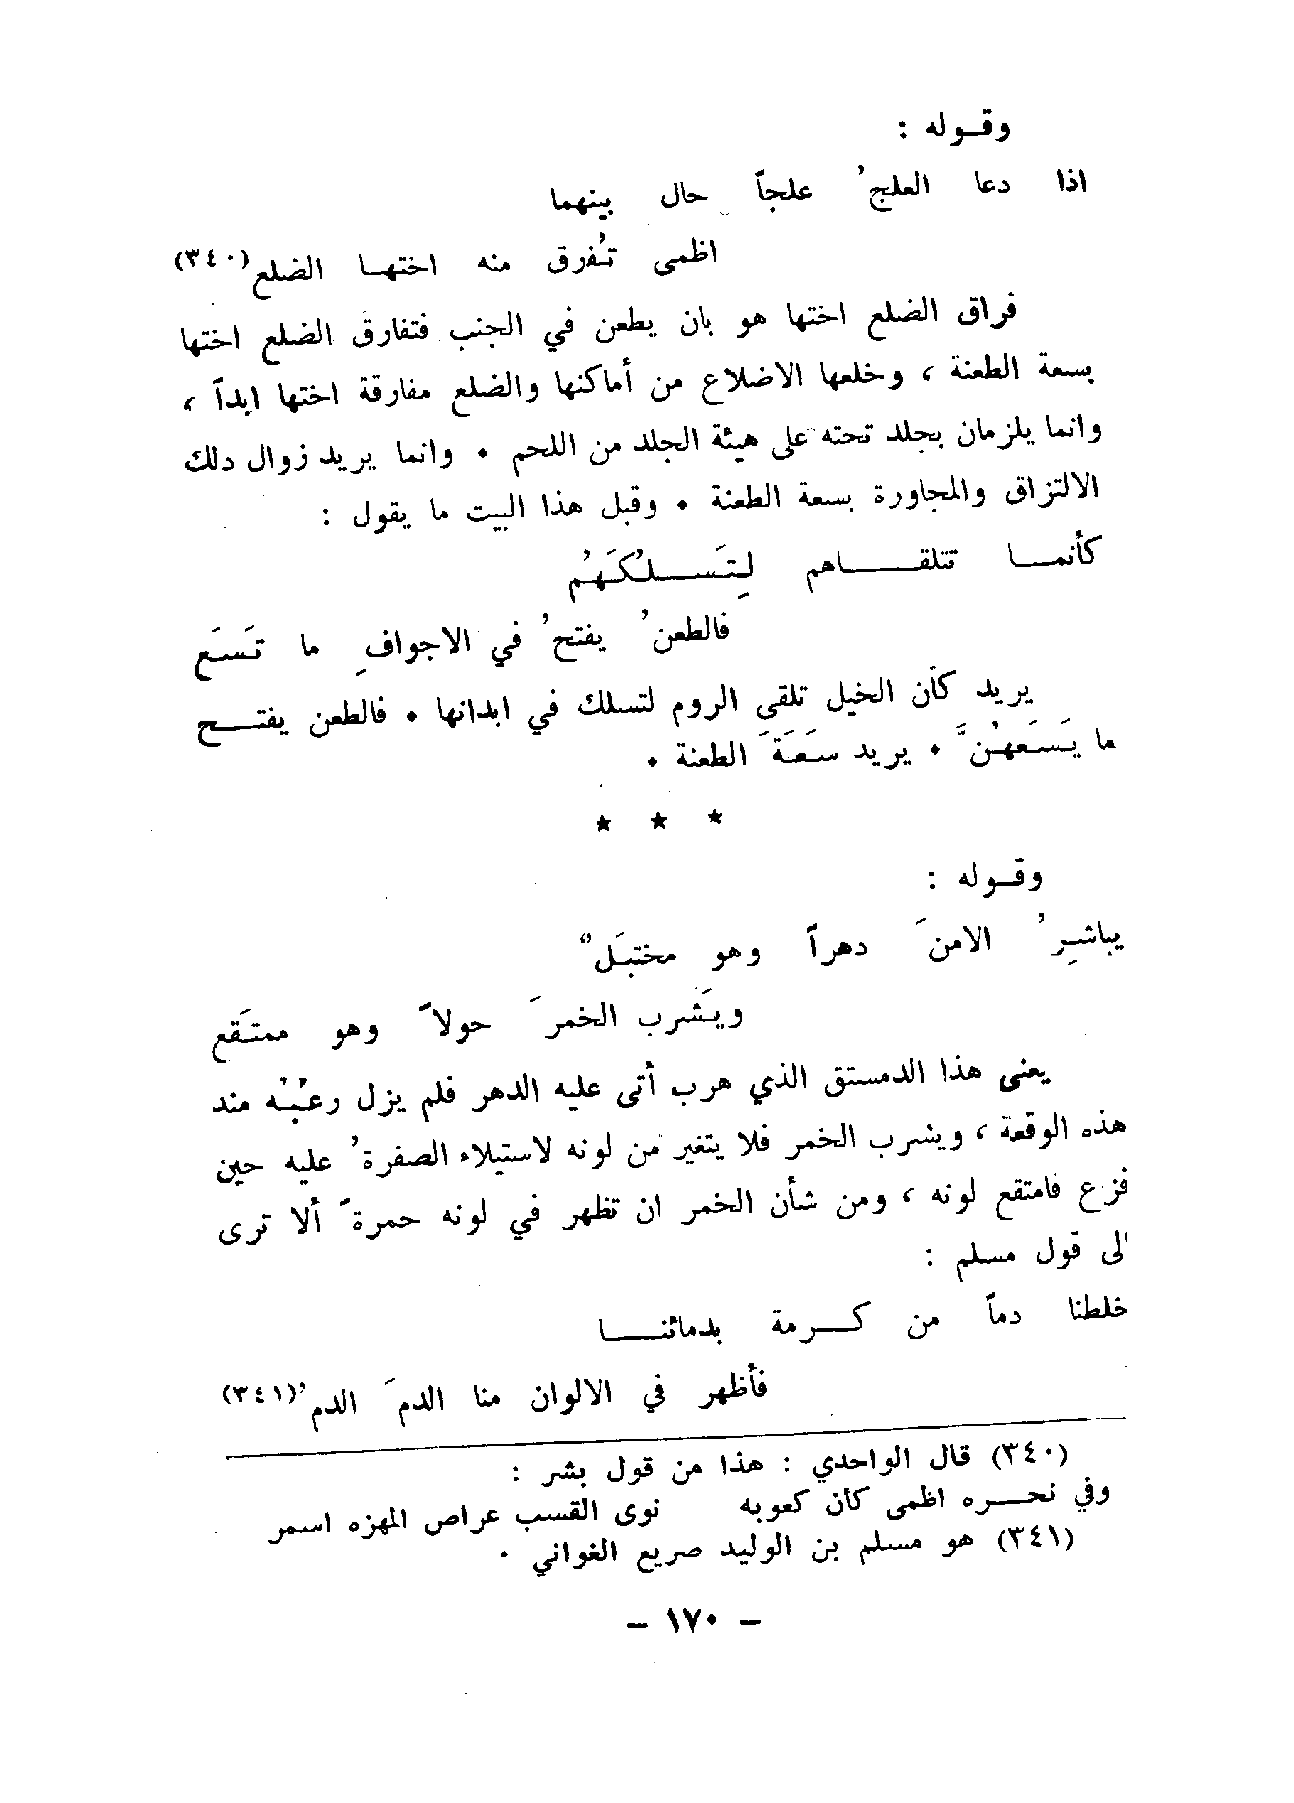 وقوله :
اذا دعا العلجُ علجاً حال بينهما
اظمى تُفرق منه اختها الضلع(٣٤٠)
فراق الضلع اختها هو بان يطعن في الجنب فتفارق الضلع اختها
بسعة الطعنة ، وخلعها الاضلاع من أماكنها والضلع مفارقة اختها ابداً ،
وانما يلزمان بجلد تحته على هيئة الجلد من اللحم • وانما يريد زوال دلك
الالتزاق والمجاورة بسعة الطعنة • وقبل هذا البيت ما يقول :
كأنما تتلقاهم لِتَسلُكَهُم
فالطعنُ يفتحُ في الاجوافِ ما تَسَع
يريد كأن الخيل تلقى الروم لتسلك في ابدانها • فالطعن يفتح
ما يَسَعهُنَّ • يريد سَعَةَ الطعنة •
★ ★ ★
وقوله :
يباشِرُ الامنَ دهراً وهو مختبَلٌ
ويَشرب الخمرَ حولاً وهو ممتَقع
يعنى هذا الدمستق الذي هرب أتى عليه الدهر فلم يزل رعْبُه مند
هذه الوقعة ، ويشرب الخمر فلا يتغير من لونه لاستيلاء الصفرةُ عليه حين
فزع فامتقع لونه ، ومن شأن الخمر ان تظهر في لونه حمرةً ألا ترى
الى قول مسلم :
خلطنا دماً من كرمة بدمائنا
فأظهر في الالوان منا الدمَ الدمُ(٣٤١)
(٣٤٠) قال الواحدي : هذا من قول بشر :
وفي نحره اظمى كأن كعوبه نوى القسب عراص المهزه اسمر
(٣٤١) هو مسلم بن الوليد صريع الغواني •
– ١٧٠ –